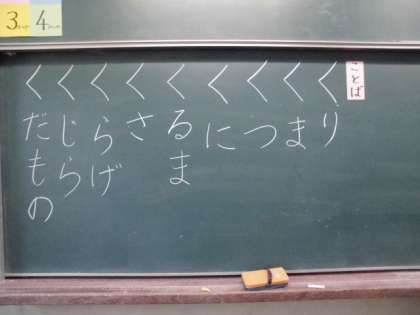 3
4
ことば
くり
くま
くつ
くに
くるま
くさ
くらげ
くじら
くだもの